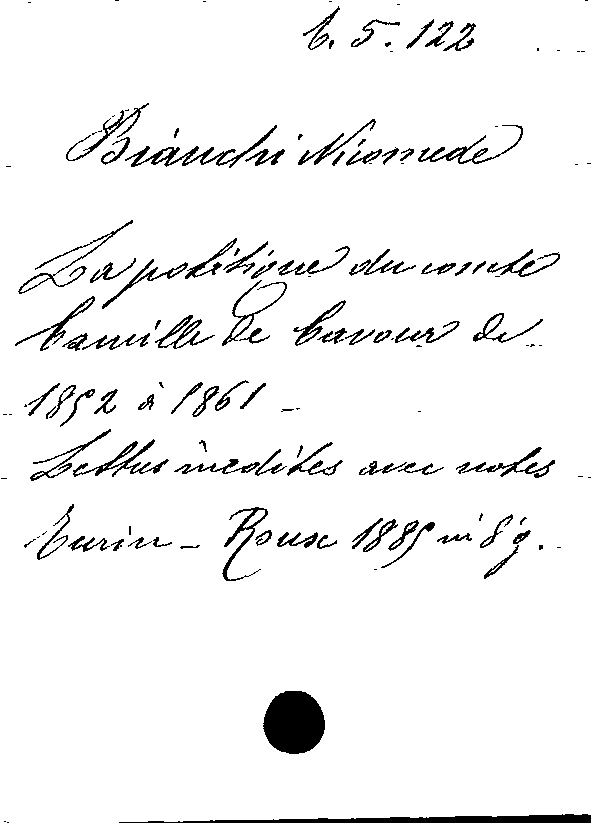 6. 5. 122
Bianchi Nicomede
La politique du comte
Camille de Cavour de
1852 à 1861 -
Lettres inedites avec notes
Turin - Roux 1885 in 8° g.